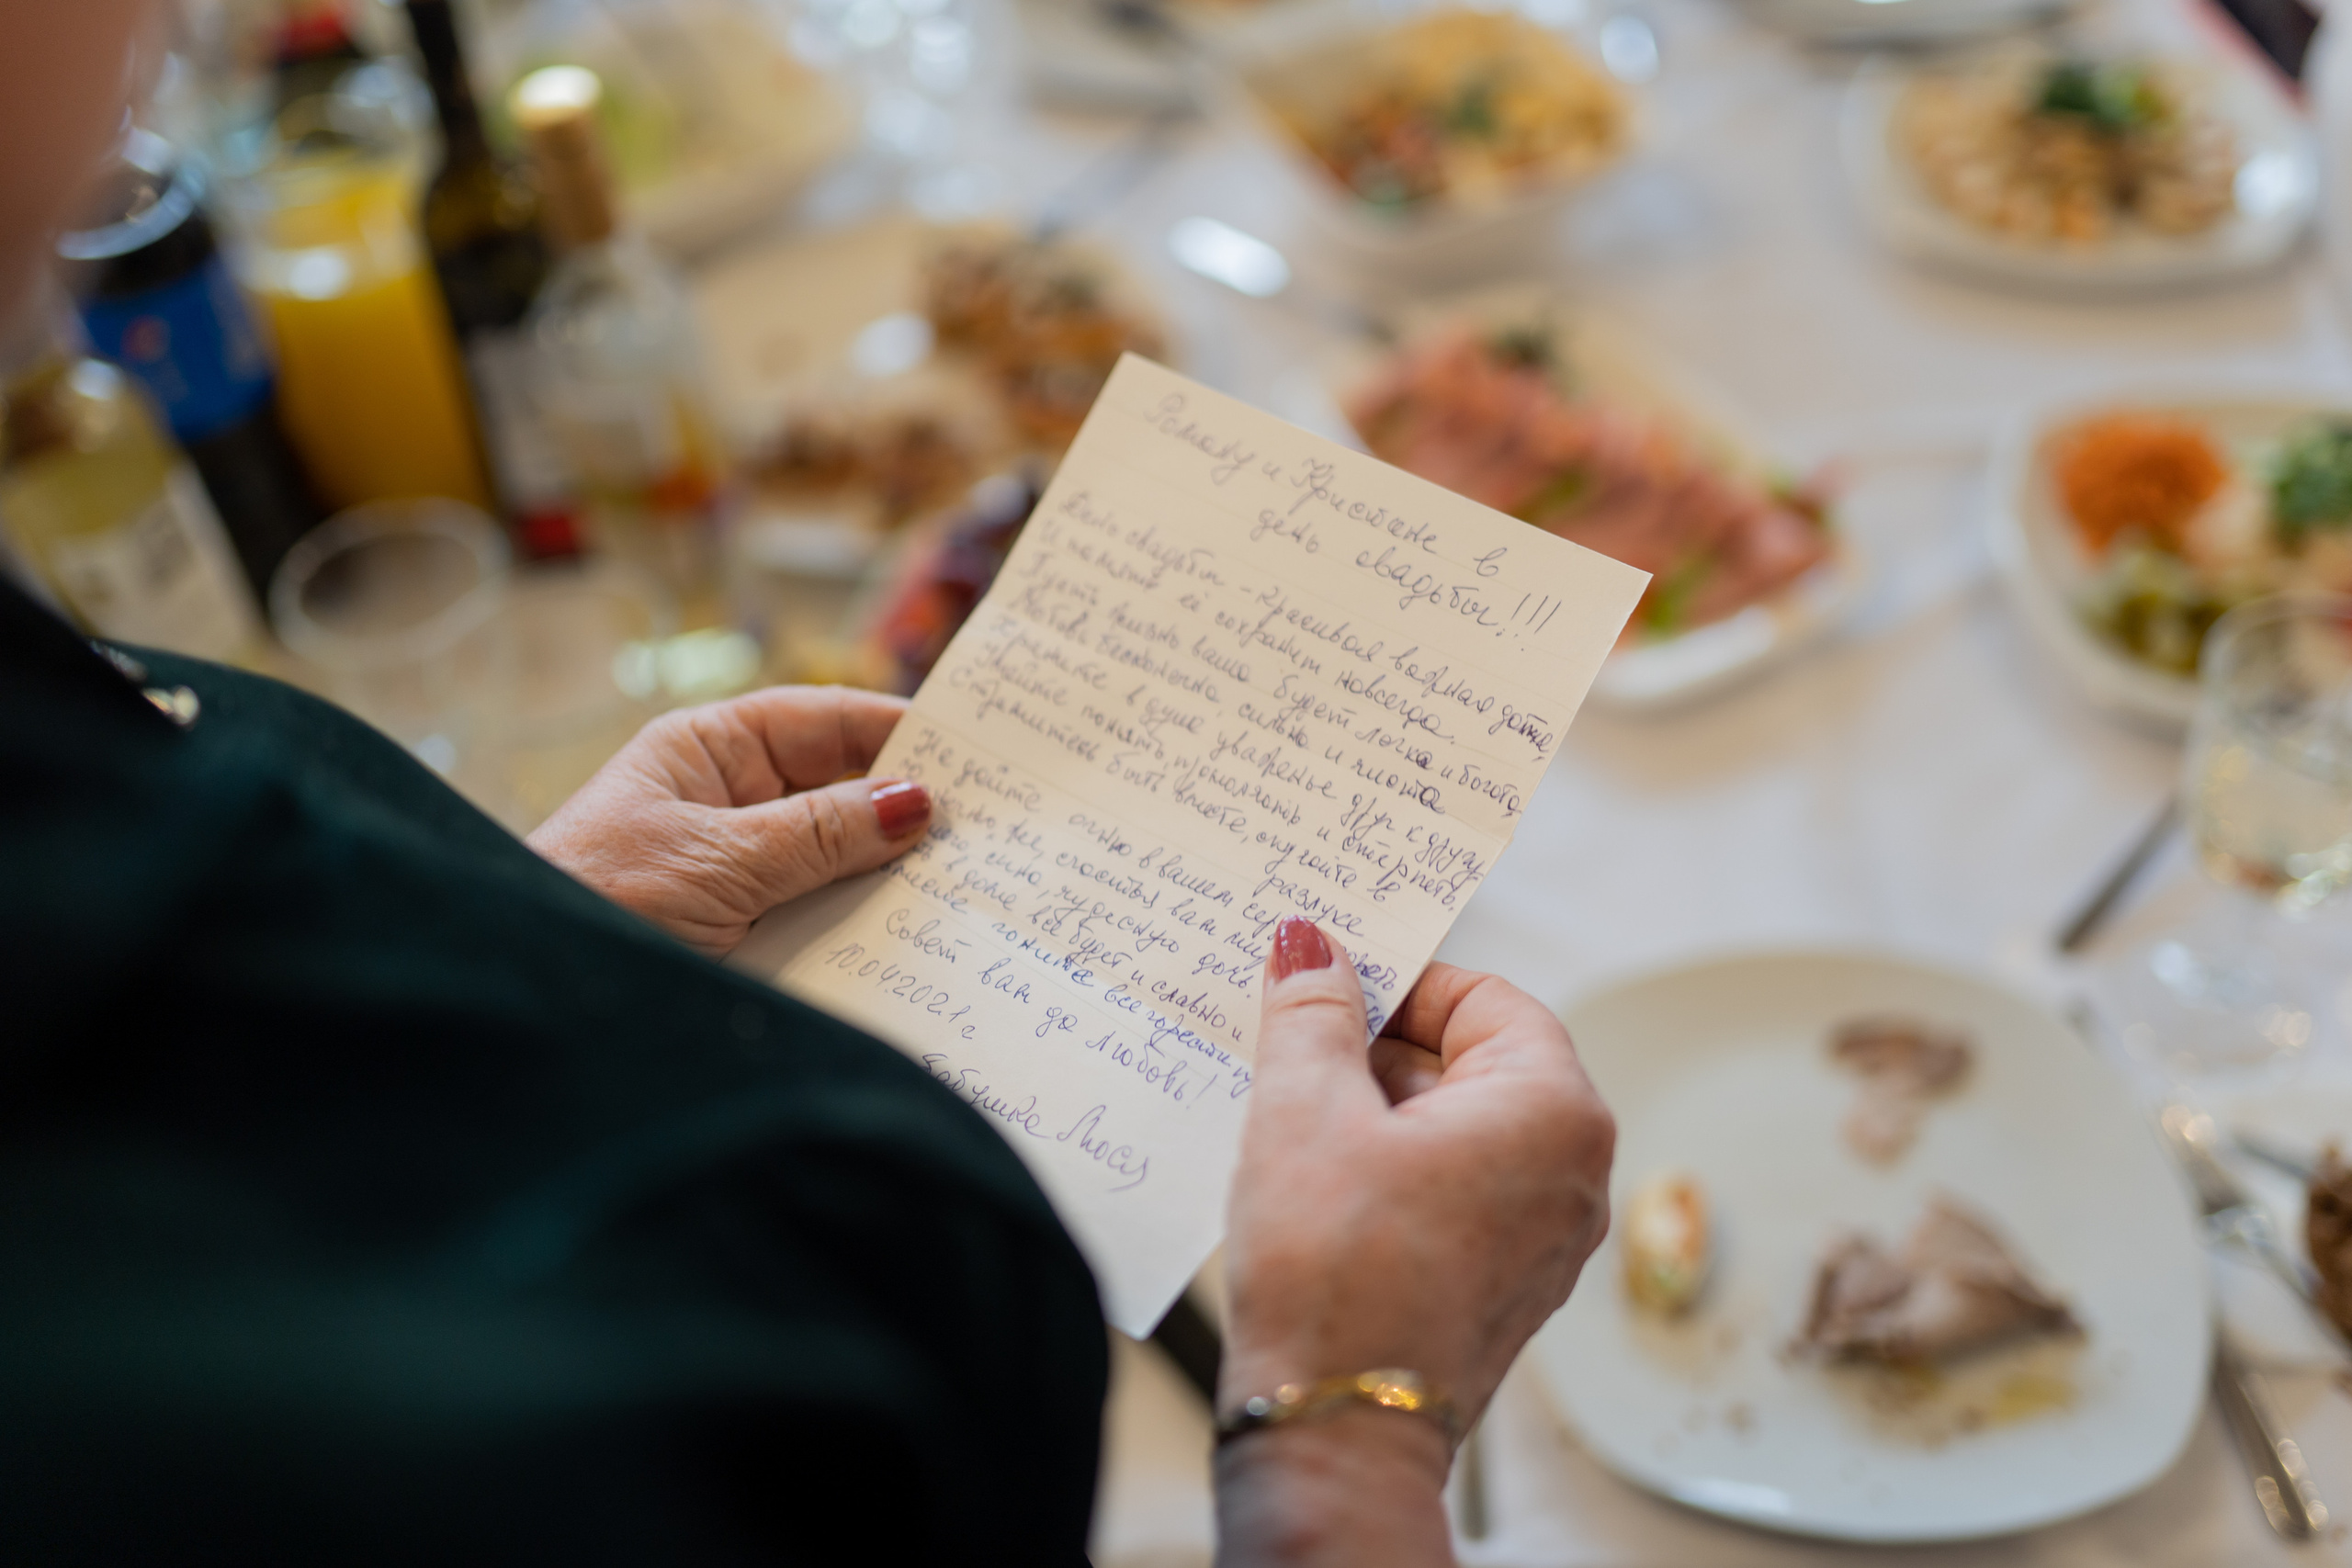 Роману и Кристине в
день свадьбы!!!
День свадьбы - красивая важная дата,
И память её сохранит навсегда.
Пусть жизнь ваша будет легка и богата,
Любовь бесконечна, сильна и чиста
Храните в душе уваженье друг к другу
Умейте понять, промолчать и стерпеть.
Стремитесь быть вместе, скучайте в
разлуке
Не дайте огню в вашем
счастья вам
сына, чудесную дочь.
в доме всё будет и славно и
гоните все горести
Совет вам да любовь!
10.04.2021 г
Бабушка Люся